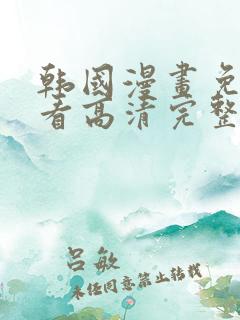 韩國漫畫免
看高清完整
吕敏
未经同意禁止转载